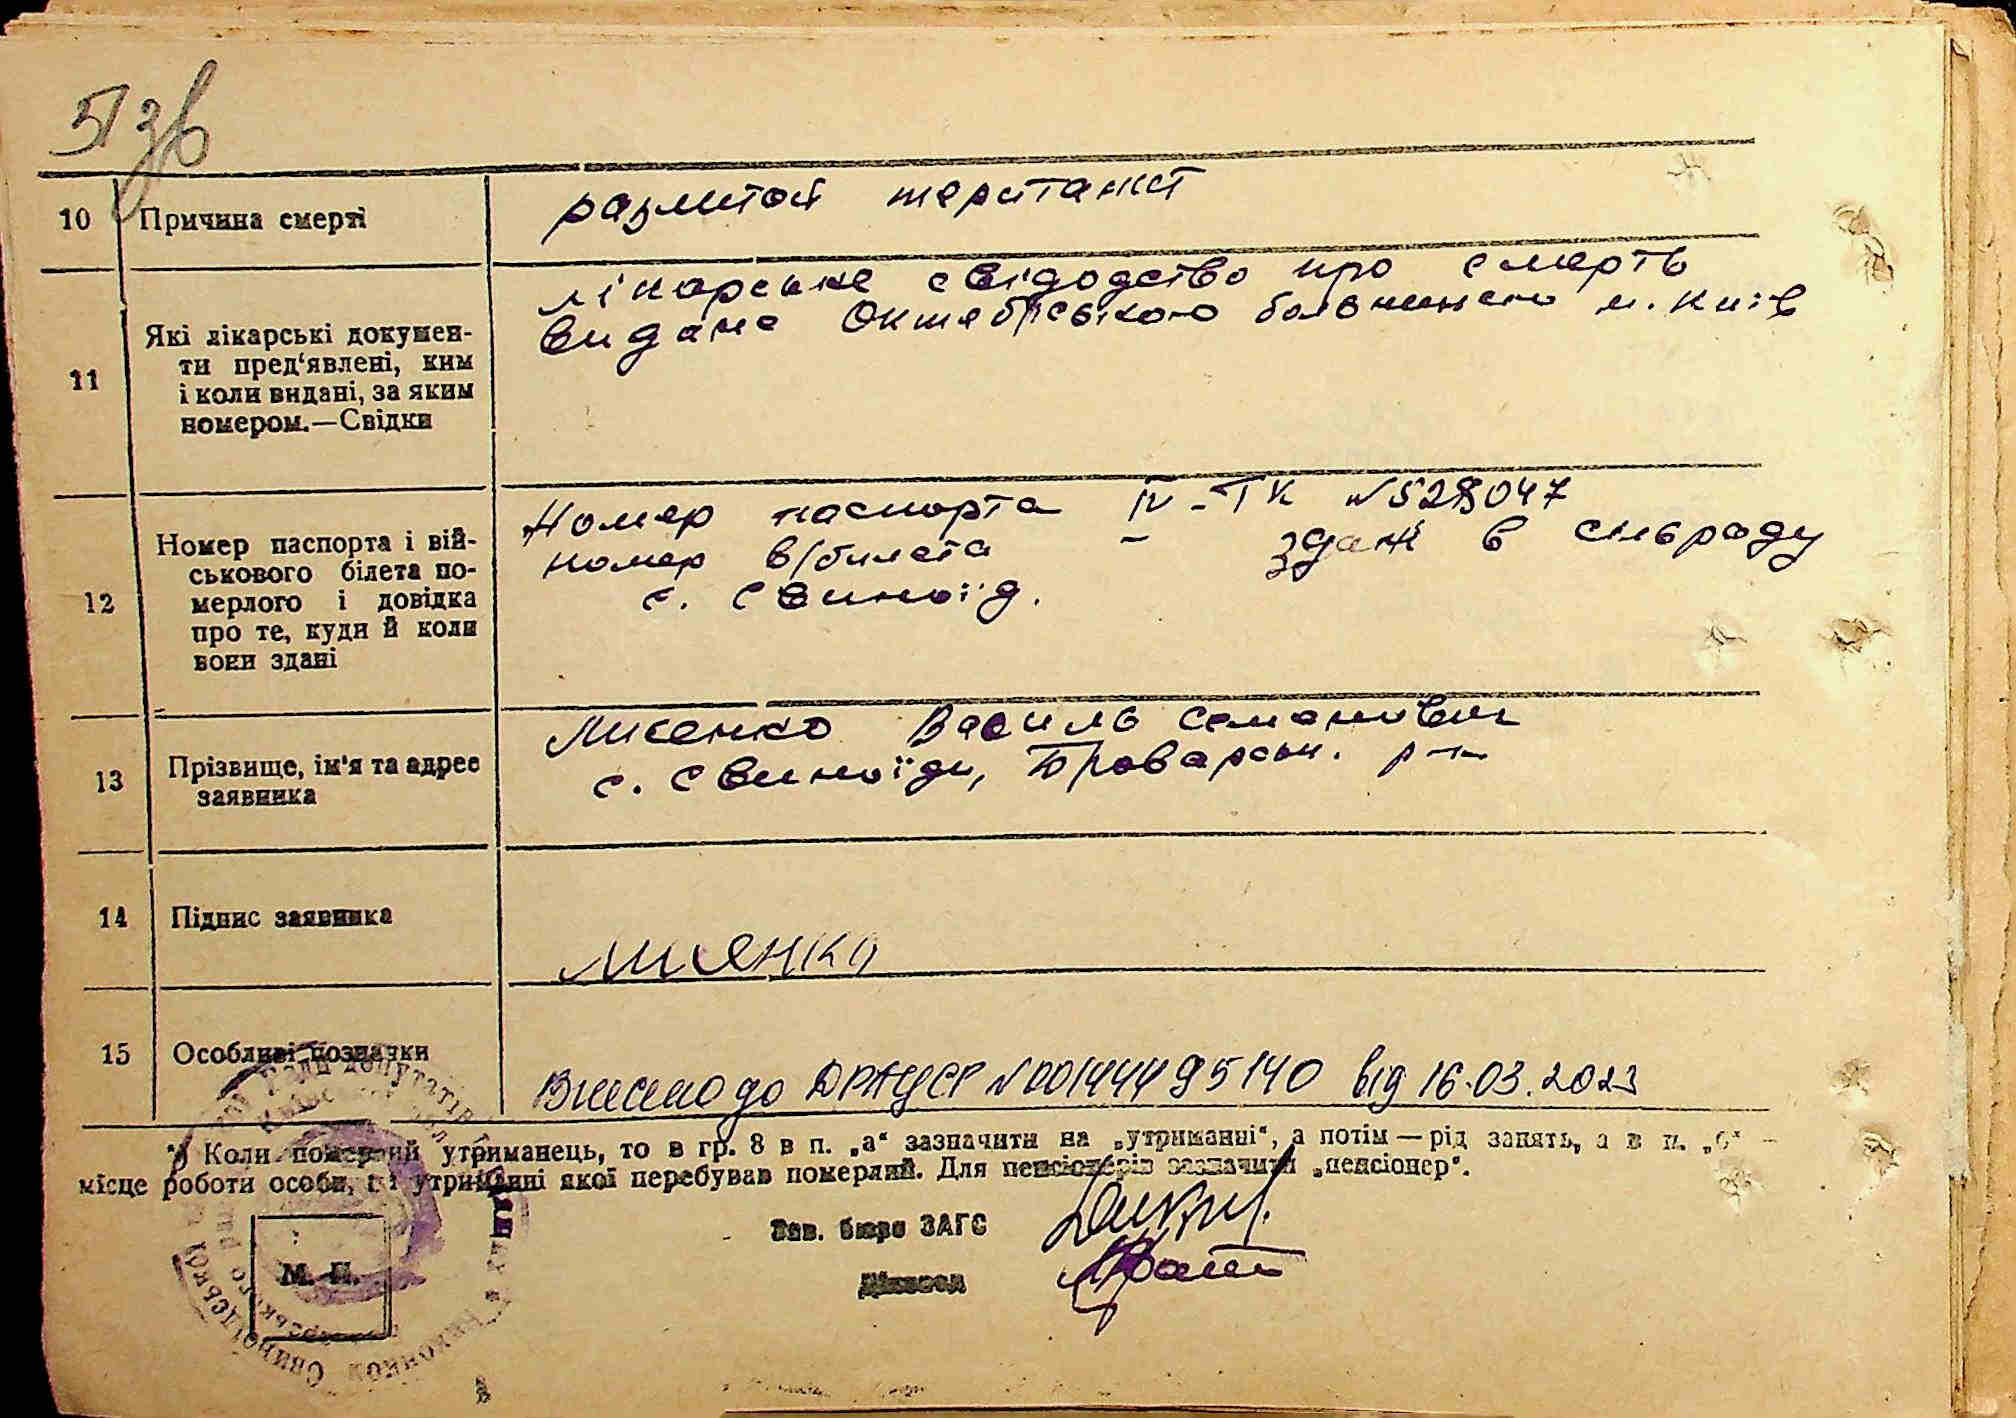 51зв
10 Причина смерті розлитой перитонит
11 Які лікарські докумен-
ти пред'явлені, ким
і коли видані, за яким
номером.—Свідки
лікарське свідодство про смерть
видане Октябрською больницею м. Київ
12 Номер паспорта і вій-
ськового білета по-
мерлого і довідка
про те, куди й коли
вони здані
Номер паспорта IV-ТК №528047
номер в/билета - здан в сільраду
с. Свиноїд.
13 Прізвище, ім'я та адрес
заявника
Лисенко Василь Семенович
с. Свиноїди, Броварськ. р-н
14 Підпис заявника
Лисенко
15 Особливі позначки
Внесено до ДРАЦСГ №00144495140 від 16.03.2023
*) Коли померлий утриманець, то в гр. 8 в п. „а“ зазначити на „утриманні“, а потім — рід занять, а в п. „б“ —
місце роботи особи, на утриманні якої перебував померлий. Для пенсіонерів зазначити „пенсіонер“.
Зав. бюро ЗАГС
Діловод
М. П.